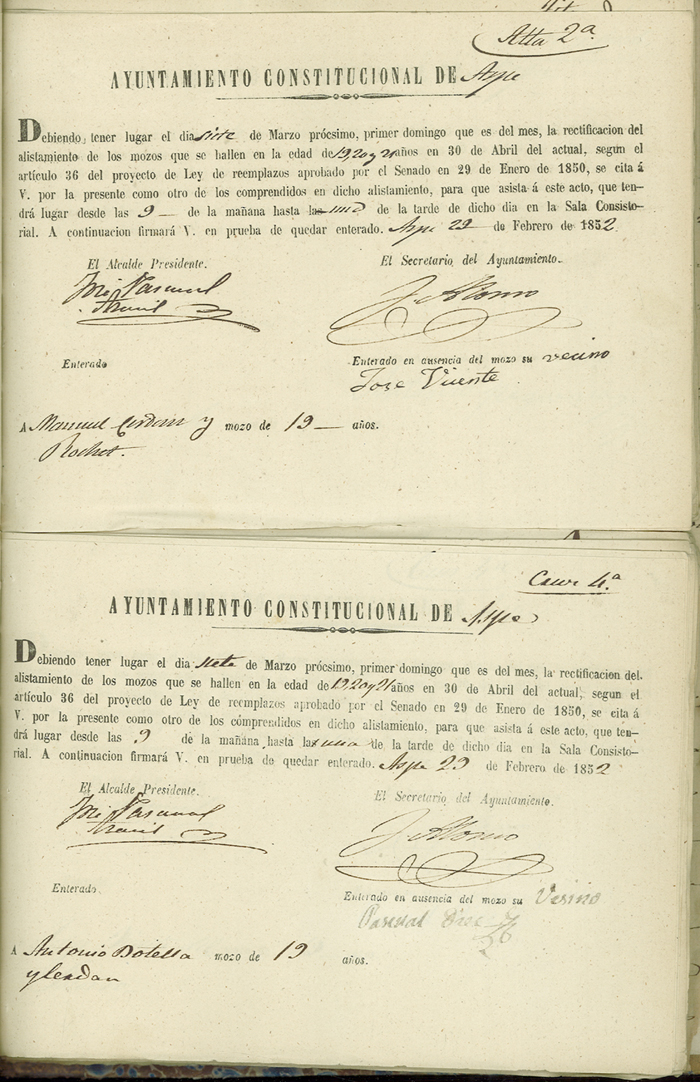 Alta 2ª
AYUNTAMIENTO CONSTITUCIONAL DE Aspe
Debiendo tener lugar el dia siete de Marzo prócsimo, primer domingo que es del mes, la rectificacion del
alistamiento de los mozos que se hallen en la edad de 19, 20 y 21 años en 30 de Abril del actual, segun el
artículo 36 del proyecto de Ley de reemplazos aprobado por el Senado en 29 de Enero de 1850, se cita á
V. por la presente como otro de los comprendidos en dicho alistamiento, para que asista á este acto, que ten-
drá lugar desde las 9 de la mañana hasta la una de la tarde de dicho dia en la Sala Consisto-
rial. A continuacion firmará V. en prueba de quedar enterado. Aspe 29 de Febrero de 1852.
El Alcalde Presidente. El Secretario del Ayuntamiento.
José Pascual J. Alonso
Enterado Enterado en ausencia del mozo su vecino
Jose Vicente
A Manuel Cerdan y mozo de 19 años.
Rochet.
4ª
AYUNTAMIENTO CONSTITUCIONAL DE Aspe
Debiendo tener lugar el dia siete de Marzo prócsimo, primer domingo que es del mes, la rectificacion del
alistamiento de los mozos que se hallen en la edad de 19, 20 y 21 años en 30 de Abril del actual, segun el
artículo 36 del proyecto de Ley de reemplazos aprobado por el Senado en 29 de Enero de 1850, se cita á
V. por la presente como otro de los cómprendidos en dicho alistamiento, para que asista á este acto, que ten-
drá lugar desde las 9 de la mañana hasta la una de la tarde de dicho dia en la Sala Consisto-
rial. A continuacion firmará V. en prueba de quedar enterado. Aspe 29 de Febrero de 1852
El Alcalde Presidente. El Secretario del Ayuntamiento.
José Pascual J. Alonso
Enterado Enterado en ausencia del mozo su Vesino
Pascual
A Antonio Botella mozo de 19 años.
y Cerdan